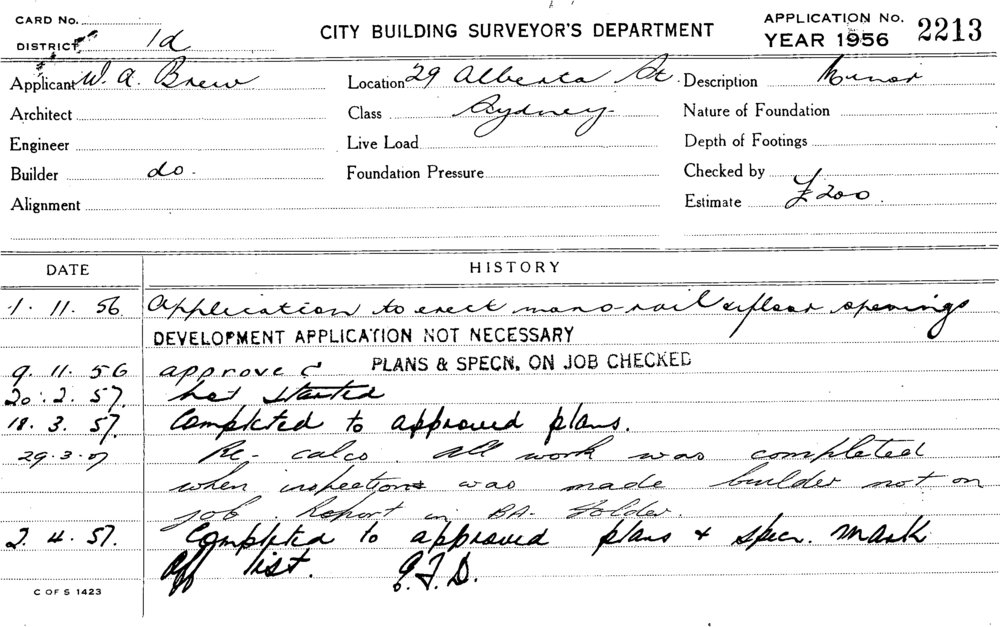 CARD No.
DISTRICT 1d
CITY BUILDING SURVEYOR'S DEPARTMENT
APPLICATION No. 2213
YEAR 1956
Applicant W. A. Brew
Location 29 Alberta St.
Description Minor
Architect
Class Sydney
Nature of Foundation
Engineer
Live Load
Depth of Footings
Builder do.
Foundation Pressure
Checked by
Alignment
Estimate £200.
DATE HISTORY
1. 11. 56 Application to erect mono-rail & floor openings
DEVELOPMENT APPLICATION NOT NECESSARY
9. 11. 56 approved PLANS & SPECN. ON JOB CHECKED
20. 2. 57. not started
18. 3. 57. Completed to approved plans.
29.3.57 Re- calcs. All work was completed
when inspection was made builder not on
job. Report in BA. Folder.
2. 4. 57. Completed to approved plans & specn. Mark
off list. G.F.D.
C OF S 1423